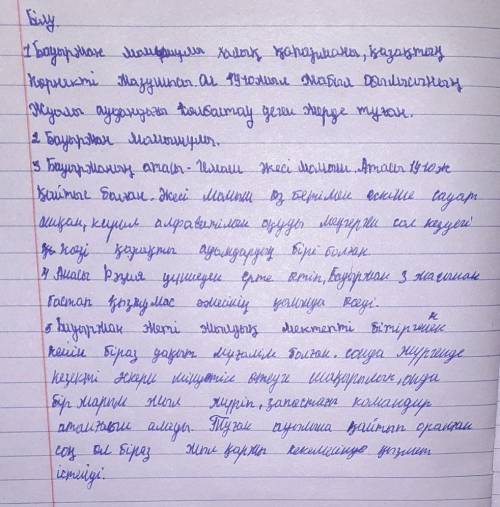 Білу.
1 Бауыржан Момышұлы халық қаһарманы, қазақтың
көрнекті жазушысы. Ол 1910 жыл Жамбыл облысының
Жуалы ауданындағы Көлбастау деген жерде туған.
2 Бауыржан Момышұлы.
3 Бауыржанның атасы - Имаш әкесі Момыш. Атасы 1910 ж
қайтыс болған. Әкесі Момыш өз бетімен ескіше сауат
ашқан, кирил алфавитімен оқуды меңгерген сол кездегі
көзі қарақты адамдардың бірі болған
4 Анасы Рәзия дүниеден ерте өтіп, Бауыржан 3 жасынан
бастап Қызтумас әжесінің қолында өседі.
5 Бауыржан жеті жылдық мектепті бітіргеннен к
кейін біраз уақыт мұғалім болған. сонда жүргенде
кезекті әскери міндетін өтеуге шақырылып, онда
бір жарым жыл жүріп, запастағы командир
атағын алады. Туған ауылына қайтып оралған
соң ол біраз жыл қаржы мекемесінде қызмет
істейді.